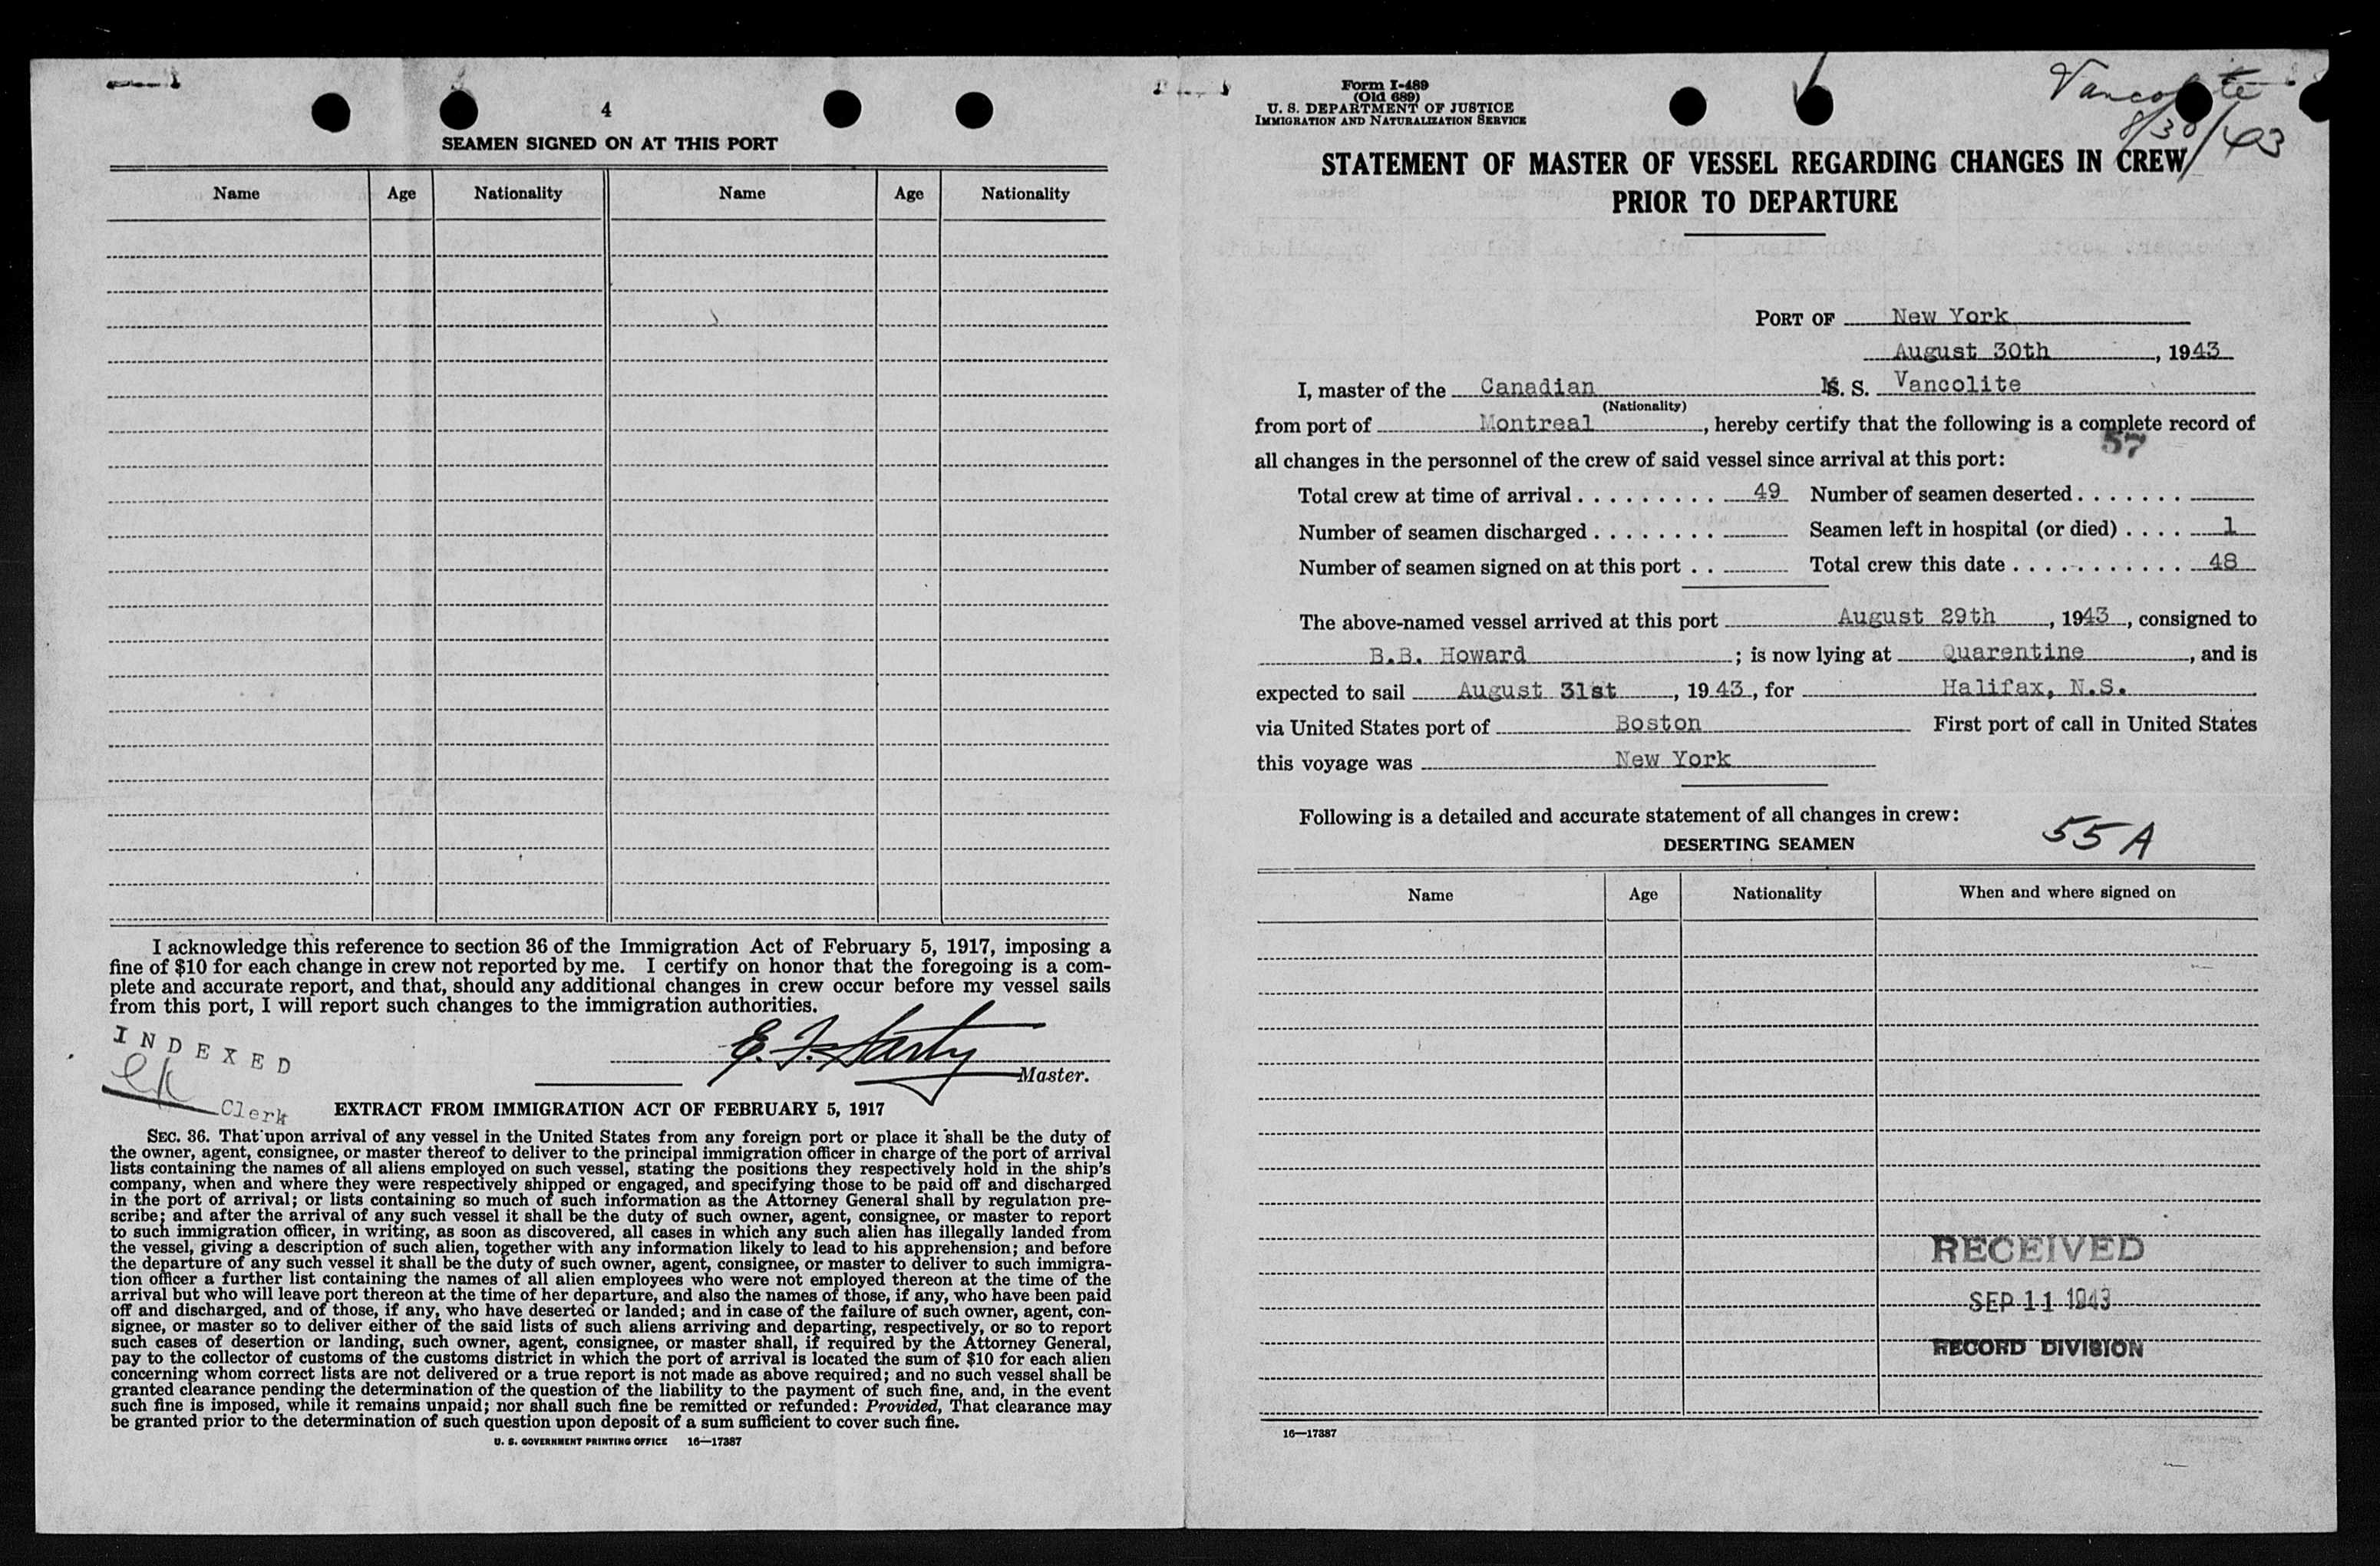 4
SEAMEN SIGNED ON AT THIS PORT
Name Age Nationality Name Age Nationality
I acknowledge this reference to section 36 of the Immigration Act of February 5, 1917, imposing a
fine of $10 for each change in crew not reported by me. I certify on honor that the foregoing is a com-
plete and accurate report, and that, should any additional changes in crew occur before my vessel sails
from this port, I will report such changes to the immigration authorities.
INDEXED
E. J.
Master.
Clerk
EXTRACT FROM IMMIGRATION ACT OF FEBRUARY 5, 1917
SEC. 36. That upon arrival of any vessel in the United States from any foreign port or place it shall be the duty of
the owner, agent, consignee, or master thereof to deliver to the principal immigration officer in charge of the port of arrival
lists containing the names of all aliens employed on such vessel, stating the positions they respectively hold in the ship's
company, when and where they were respectively shipped or engaged, and specifying those to be paid off and discharged
in the port of arrival; or lists containing so much of such information as the Attorney General shall by regulation pre-
scribe; and after the arrival of any such vessel it shall be the duty of such owner, agent, consignee, or master to report
to such immigration officer, in writing, as soon as discovered, all cases in which any such alien has illegally landed from
the vessel, giving a description of such alien, together with any information likely to lead to his apprehension; and before
the departure of any such vessel it shall be the duty of such owner, agent, consignee, or master to deliver to such immigra-
tion officer a further list containing the names of all alien employees who were not employed thereon at the time of the
arrival but who will leave port thereon at the time of her departure, and also the names of those, if any, who have been paid
off and discharged, and of those, if any, who have deserted or landed; and in case of the failure of such owner, agent, con-
signee, or master so to deliver either of the said lists of such aliens arriving and departing, respectively, or so to report
such cases of desertion or landing, such owner, agent, consignee, or master shall, if required by the Attorney General,
pay to the collector of customs of the customs district in which the port of arrival is located the sum of $10 for each alien
concerning whom correct lists are not delivered or a true report is not made as above required; and no such vessel shall be
granted clearance pending the determination of the question of the liability to the payment of such fine, and, in the event
such fine is imposed, while it remains unpaid; nor shall such fine be remitted or refunded: Provided, That clearance may
be granted prior to the determination of such question upon deposit of a sum sufficient to cover such fine.
U. S. GOVERNMENT PRINTING OFFICE 16—17387
Form I-489
(Old 689)
U. S. DEPARTMENT OF JUSTICE
IMMIGRATION AND NATURALIZATION SERVICE
Vancolite
8/30/43
STATEMENT OF MASTER OF VESSEL REGARDING CHANGES IN CREW
PRIOR TO DEPARTURE
PORT OF New York
August 30th, 1943
I, master of the Canadian M. S. Vancolite
(Nationality)
from port of Montreal, hereby certify that the following is a complete record of
57
all changes in the personnel of the crew of said vessel since arrival at this port:
Total crew at time of arrival 49 Number of seamen deserted
Number of seamen discharged Seamen left in hospital (or died) 1
Number of seamen signed on at this port Total crew this date 48
The above-named vessel arrived at this port August 29th, 1943, consigned to
B.B. Howard; is now lying at Quarentine, and is
expected to sail August 31st, 1943, for Halifax, N.S.
via United States port of Boston First port of call in United States
this voyage was New York
Following is a detailed and accurate statement of all changes in crew:
55 A
DESERTING SEAMEN
Name Age Nationality When and where signed on
RECEIVED
SEP 11 1943
RECORD DIVISION
16—17387